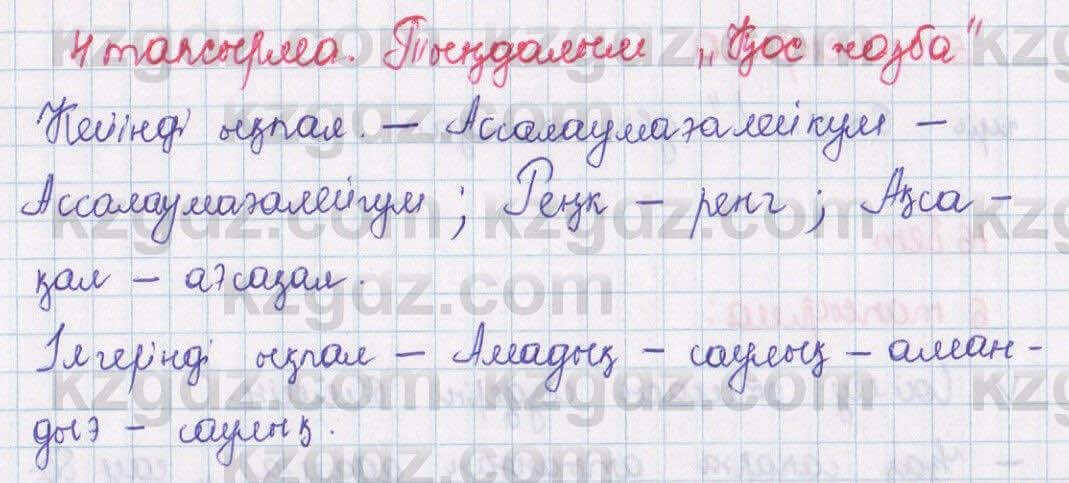 4 тапсырма. Тыңдалым „Қос жазба“
Кейінді ықпал. – Ассалаумағалейкум –
Ассалаумағалейгум ; Реңк – ренг ; Ақса –
қал – ағсақал.
Ілгерінді ықпал – Амадық – саулық – аман –
дығ – саулық.
kzgdz.com